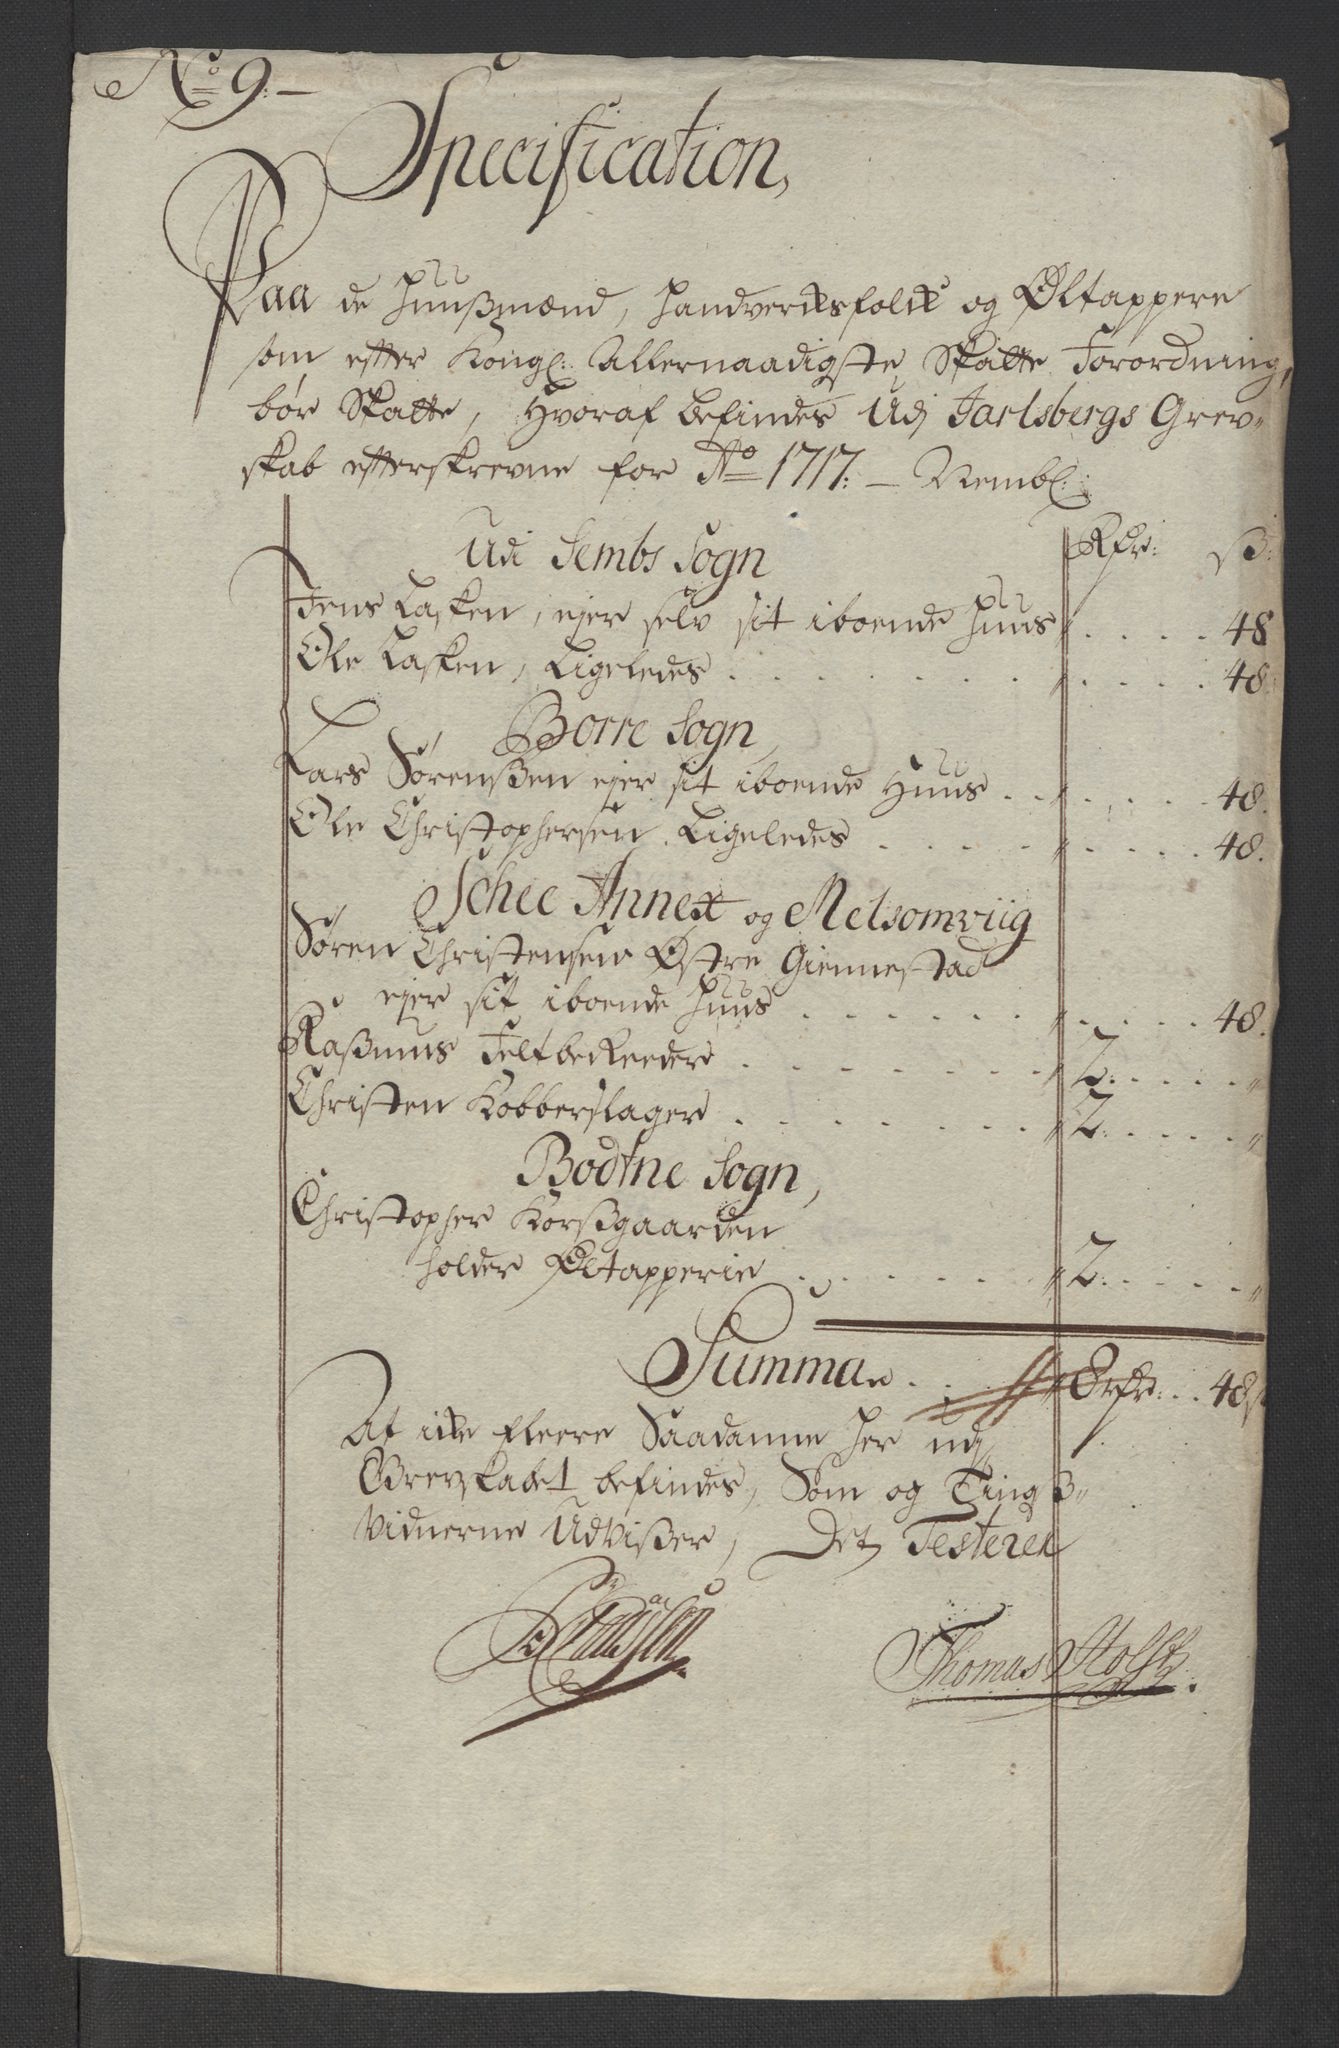 No 9.
Specification,
Paa de Huußmænd, Handverchsfolck og Øltappere
som efter Kongl: Allernaadigste Skatte Forordning,
bør Skatte, Hvoraf befindes Udj Jarlsbergs Grev-
skab efterskrevne for Ao 1717. Nembl:
Udi Sembs Sogn Rdr: ß:
Jens Lasken, ejer selv sit iboende Huus 48
Ole Lasken, Ligeledes 48
Borre Sogn,
Lars Sørenßen ejer sit iboende Huus 48.
Ole Christophersen Ligeledes 48.
Schee Annex og Melsomviig
Søren Christensen Østre Giennestad
ejer sit iboende Huus 48.
Raßmus Feltbereeder 2.
Christen Kobberslager 2.
Bodtne Sogn,
Christopher Korßgaarden
holder Øltapperie 2.
Summa 8 rdr: 48 ß
At icke fleere Saadanne her udj
Grevskabet befindes, Som og Tingß-
vidnerne Udvißer, Det Testerer
Thomas Holst